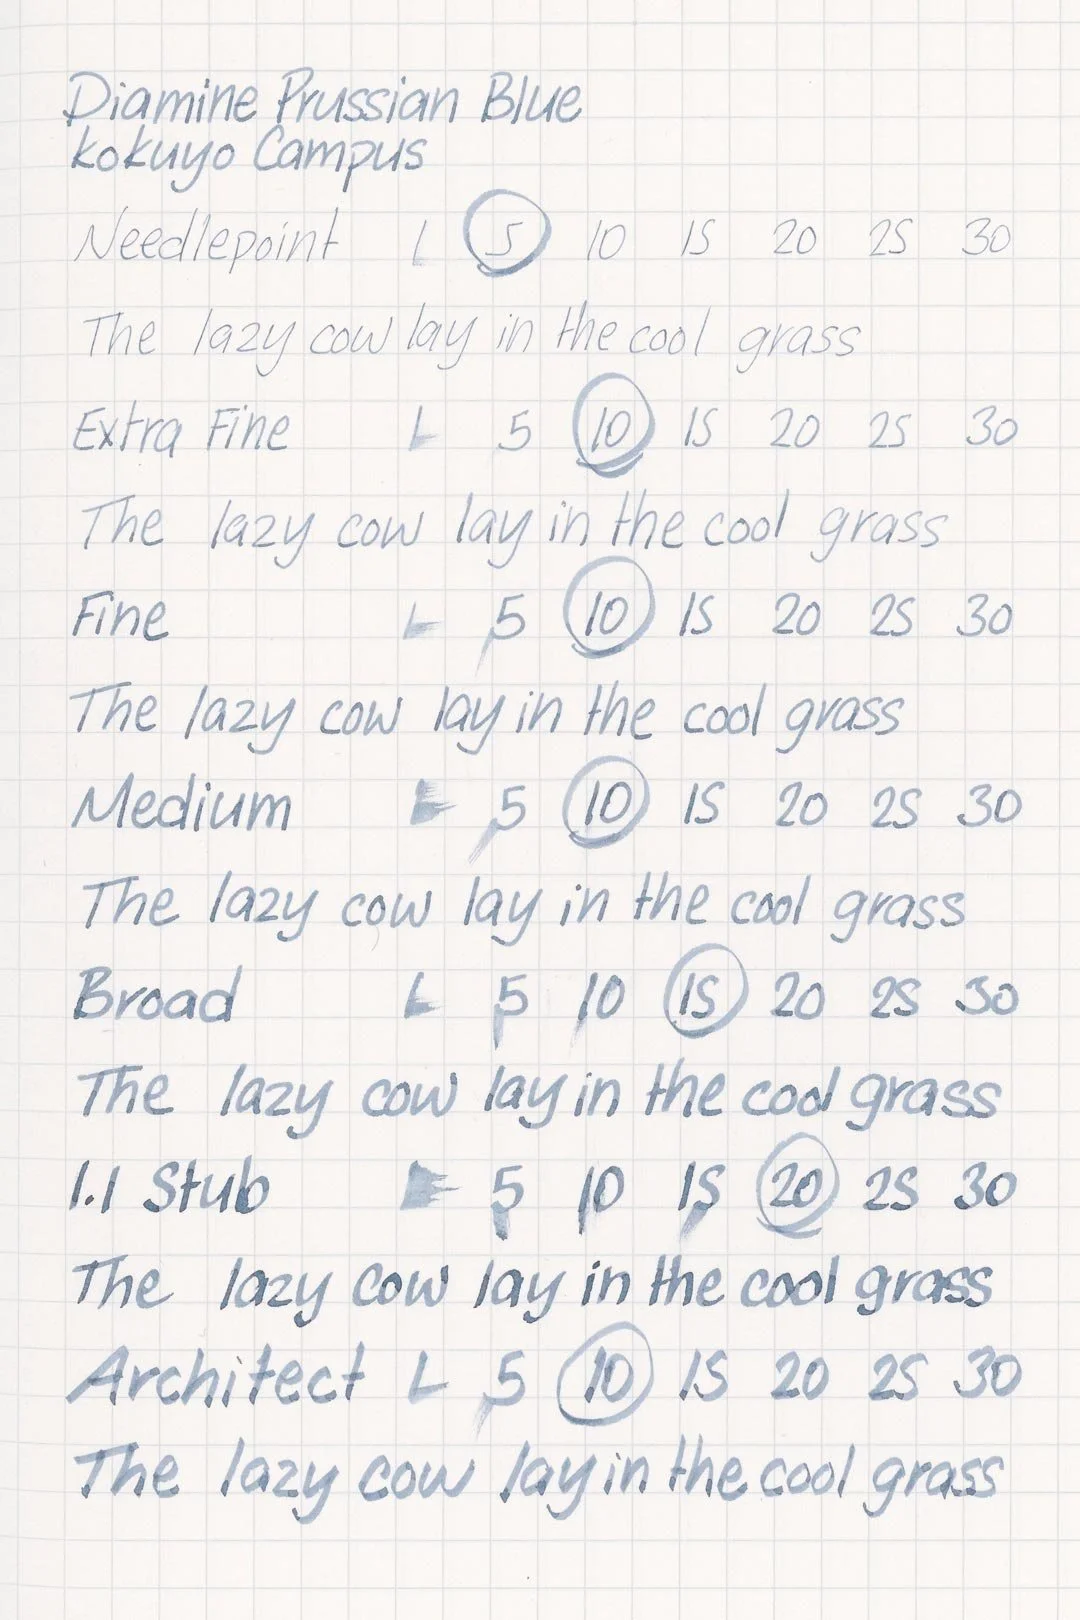 Diamine Prussian Blue
Kokuyo Campus
Needlepoint L 5 10 15 20 25 30
The lazy cow lay in the cool grass
Extra Fine L 5 10 15 20 25 30
The lazy cow lay in the cool grass
Fine L 5 10 15 20 25 30
The lazy cow lay in the cool grass
Medium L 5 10 15 20 25 30
The lazy cow lay in the cool grass
Broad L 5 10 15 20 25 30
The lazy cow lay in the cool grass
1.1 Stub L 5 10 15 20 25 30
The lazy cow lay in the cool grass
Architect L 5 10 15 20 25 30
The lazy cow lay in the cool grass